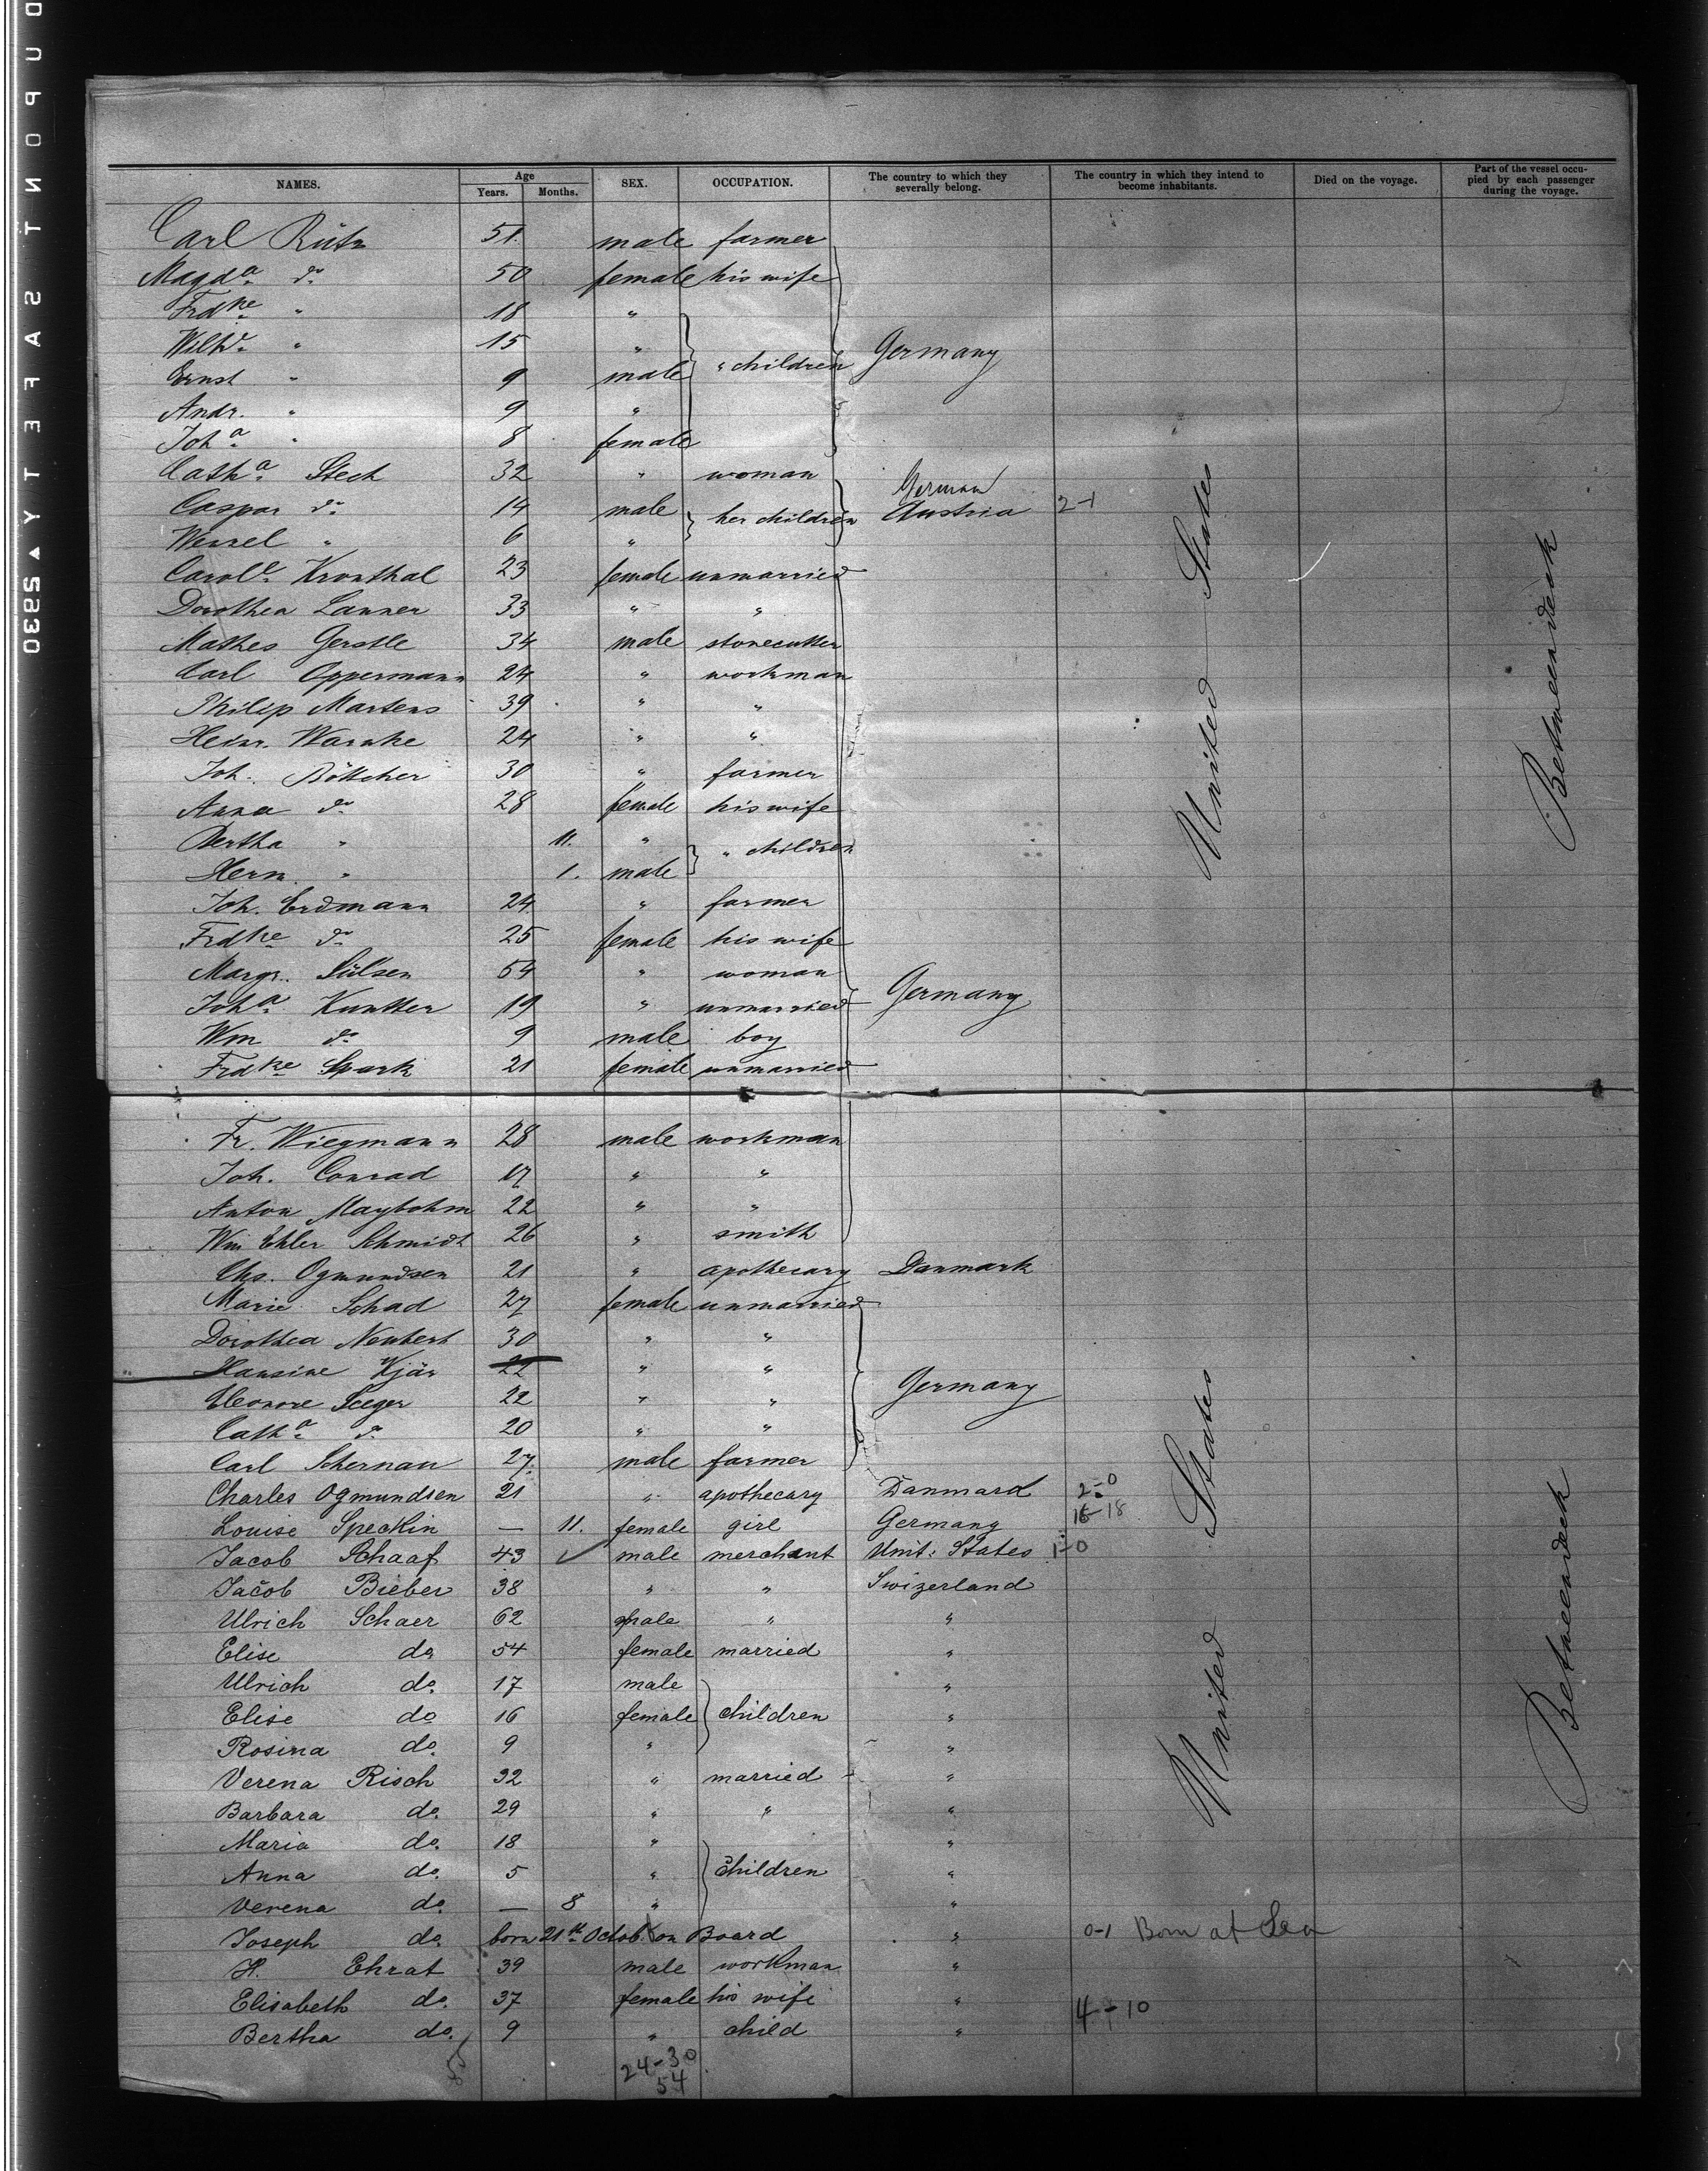 DUPONT SAFETY 2330
NAMES. Age Years. Months. SEX. OCCUPATION. The country to which they severally belong. The country in which they intend to become inhabitants. Died on the voyage. Part of the vessel occupied by each passenger during the voyage.
Carl Rütz 51. male farmer
Magda. do. 50 female his wife
Frdke. " 18 "
Wilh. " 15 "
Ernst " 9 male " children Germany
Andr. " 9 "
Joha. " 8 female
Catha. Stech 32 " woman
German
Caspar do. 14 male her children Austria 2-1
Wenzel " 6 "
Carole. Kronthal 23 female unmarried
Dorothea Lanner 33 " "
Mathes Gerstle 34 male stonecutter
Carl Oppermann 24 " workman
Philip Martens 39 " "
Heinr. Warnke 24 " "
Joh. Böttcher 30 " farmer
Anna do. 28 female his wife
Bertha " 11. " " children
Herm. " 1. male
Joh. Erdmann 24 " farmer
Frdke do. 25 female his wife
Margr. Sülsen 54 " woman
Joha. Kuntter 19 " unmarried Germany
Wm do. 9 male boy
Frdke Spark 21 female unmarried
United States
Betweendeck
Fr. Wiegmann 28 male workman
Joh. Conrad 17 " "
Anton Maybohm 22 " "
Wm Ehler Schmidt 26 " smith
Chs. Ogmundsen 21 " apothecary Danmark
Marie Schad 27 female unmarried
Dorothea Neubert 30 " "
Hansine Kjär 22 " "
Eleonore Seeger 22 " " Germany
Catha. do. 20 " "
Carl Schernau 27. male farmer
Charles Ogmundsen 21 " apothecary Danmark 2-0
Louise Speckin — 11. female girl Germany 16-18
Jacob Schaaf 43 male merchant Unit: States 1-0
Jacob Bieber 38 " " Swizerland
Ulrich Schaer 62 male " "
Elise do 54 female married "
Ulrich do. 17 male "
Elise do 16 female children "
Rosina do. 9 " "
Verena Risch 32 " married "
Barbara do. 29 " " "
Maria do. 18 " "
Anna do. 5 " children "
Verena do. — 8 " "
Joseph do. born 21th Octob. on Board " 0-1 Born at Sea
H. Ehrat 39 male workman "
Elisabeth do. 37 female his wife " 4-10
Bertha do. 9 " child "
24-30
54
United States
Betweendeck